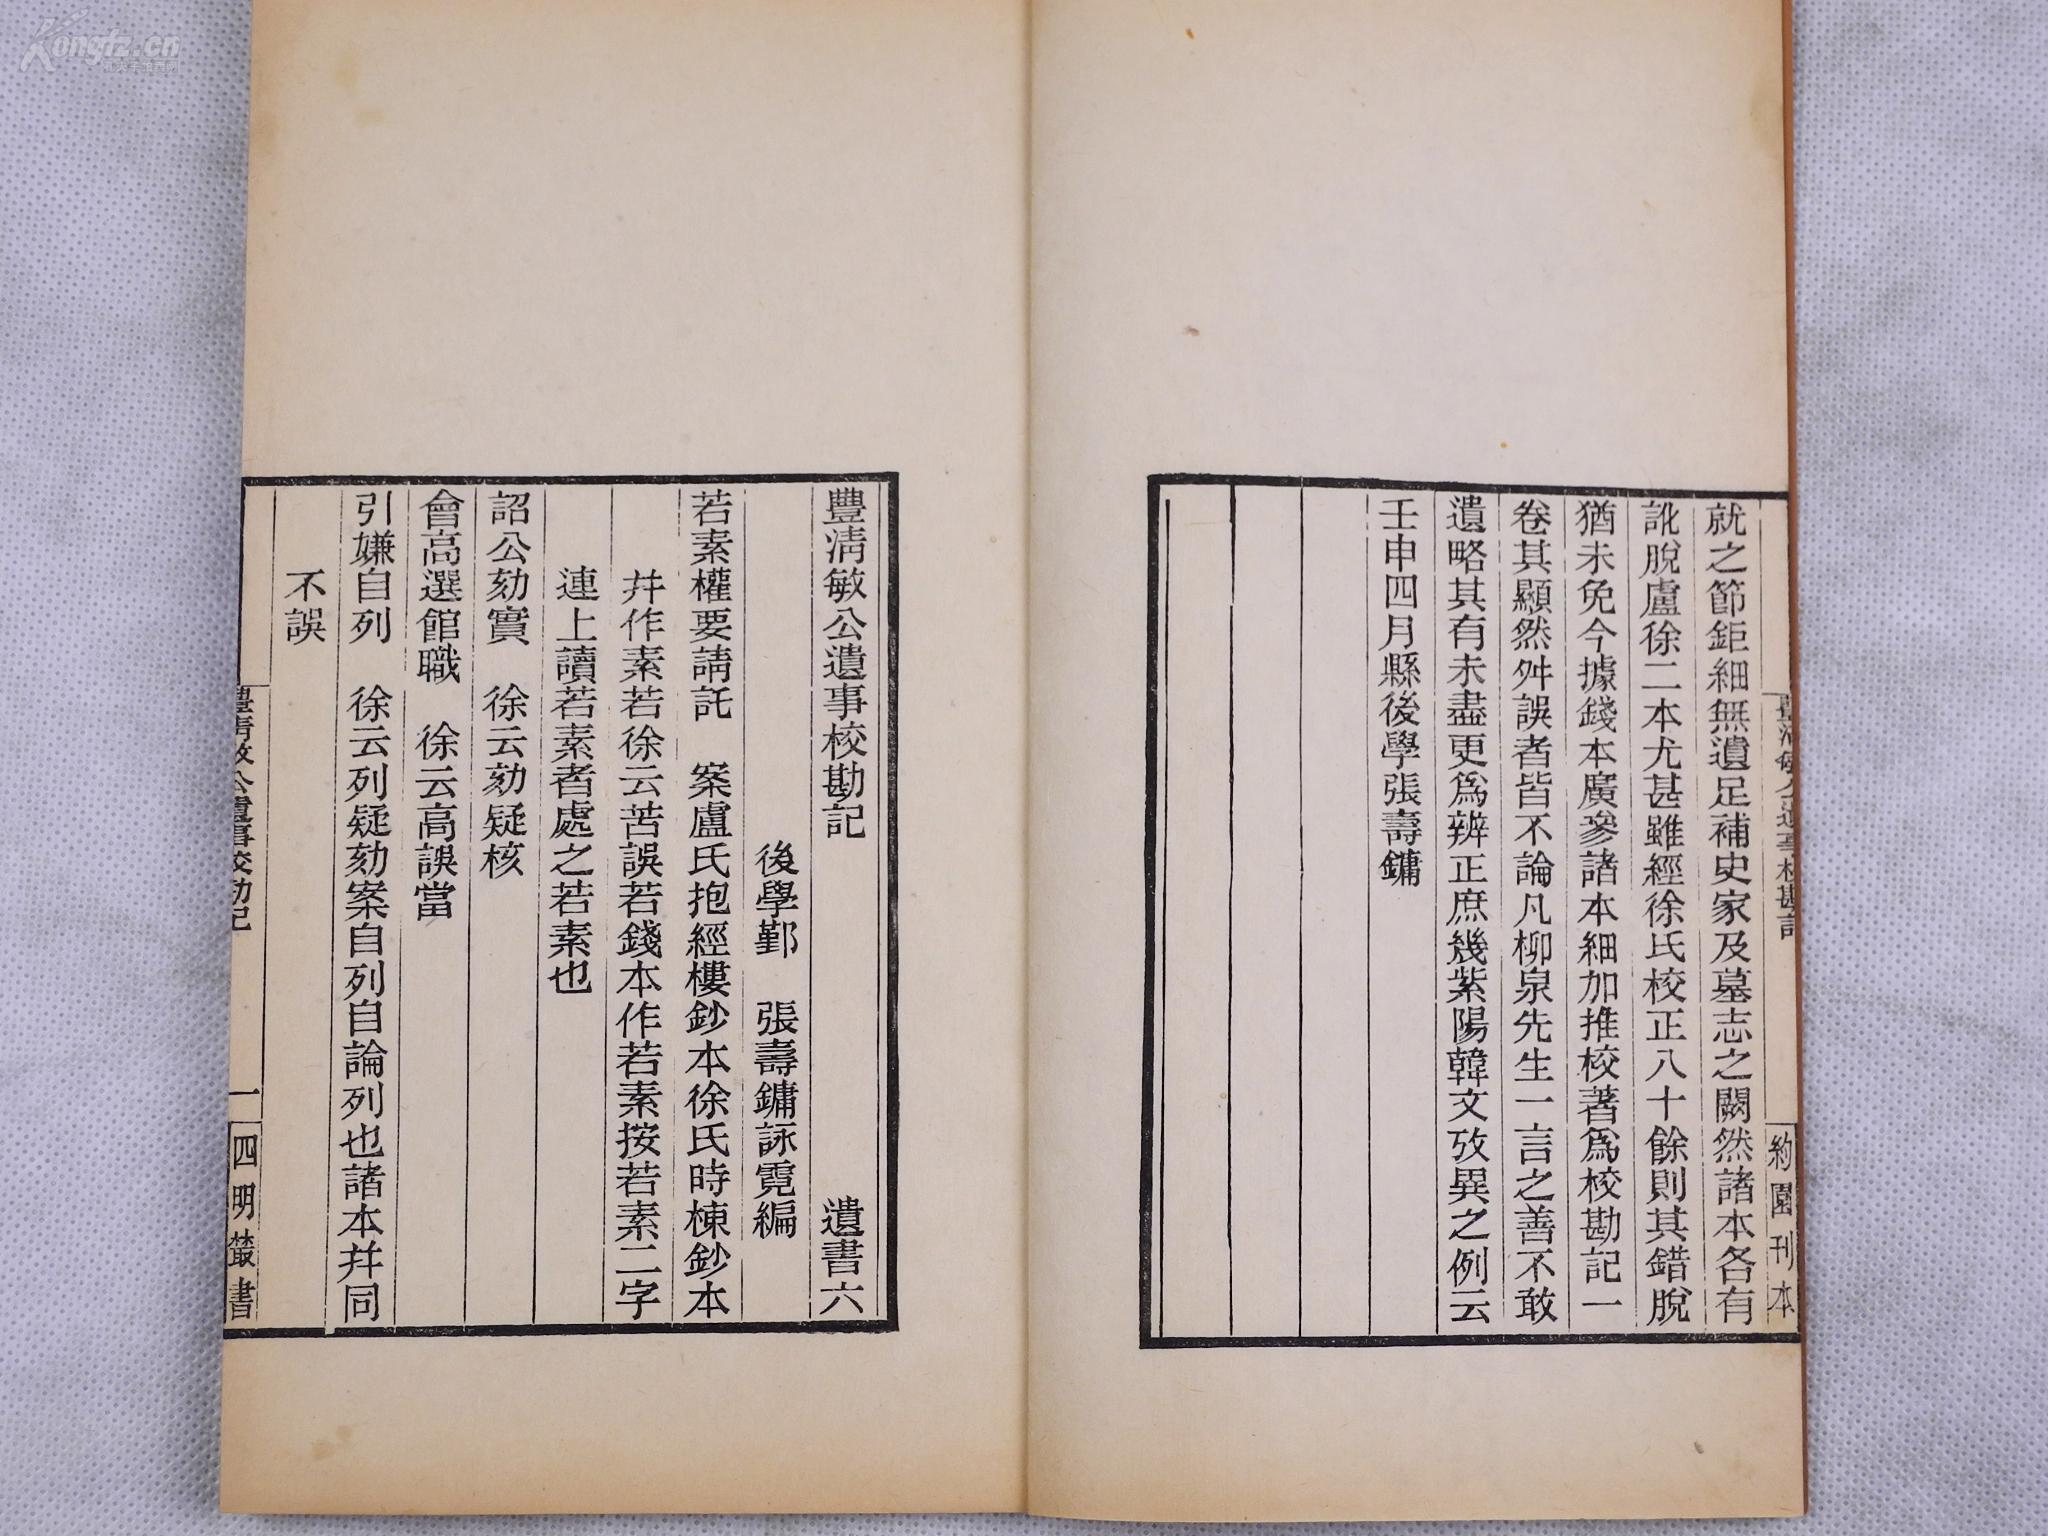 就之節鉅細無遺足補史家及墓志之闕然諸本各有
訛脫盧徐二本尤甚雖經徐氏校正八十餘則其錯脫
猶未免今據錢本廣參諸本細加推校著爲校勘記一
卷其顯然舛誤者皆不論凡柳泉先生一言之善不敢
遺略其有未盡更爲辨正庶幾紫陽韓文攷異之例云
壬申四月縣後學張壽鏞
豐淸敏公遺事校勘記
約園刊本
豐淸敏公遺事校勘記 遺書六
後學鄞 張壽鏞詠霓編
若素權要請託 案盧氏抱經樓鈔本徐氏時棟鈔本
幷作素若徐云苦誤若錢本作若素按若素二字
連上讀若素者處之若素也
詔公劾實 徐云劾疑核
會高選館職 徐云高誤當
引嫌自列 徐云列疑劾案自列自論列也諸本幷同
不誤
豐淸敏公遺事校勘記
一
四明叢書
Kongfz.cn